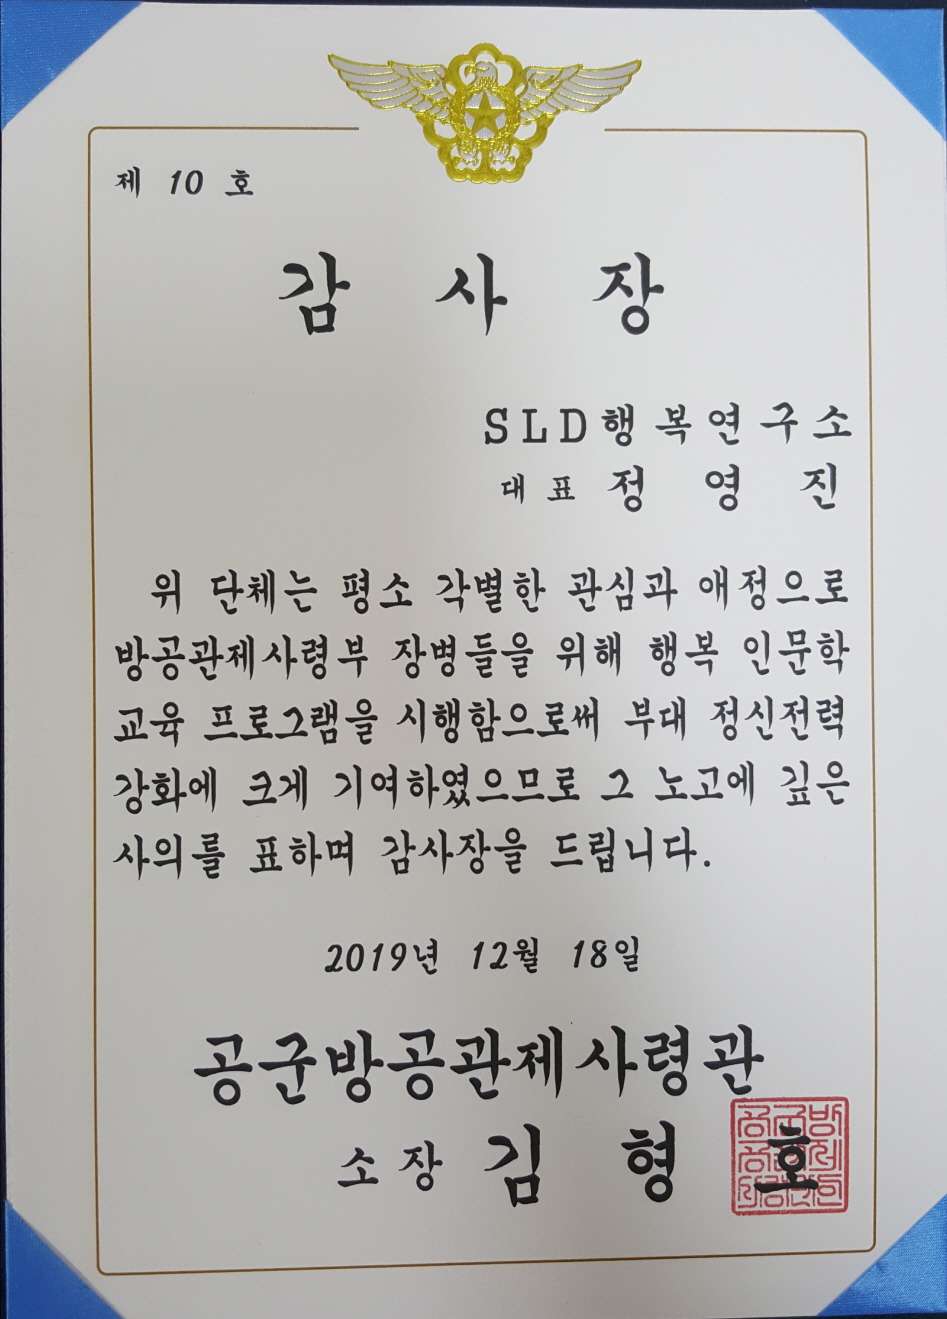 제 10 호
감 사 장
SLD행복연구소
대표 정 영 진
위 단체는 평소 각별한 관심과 애정으로
방공관제사령부 장병들을 위해 행복 인문학
교육 프로그램을 시행함으로써 부대 정신전력
강화에 크게 기여하였으므로 그 노고에 깊은
사의를 표하며 감사장을 드립니다.
2019년 12월 18일
공군방공관제사령관
소장 김 형 호